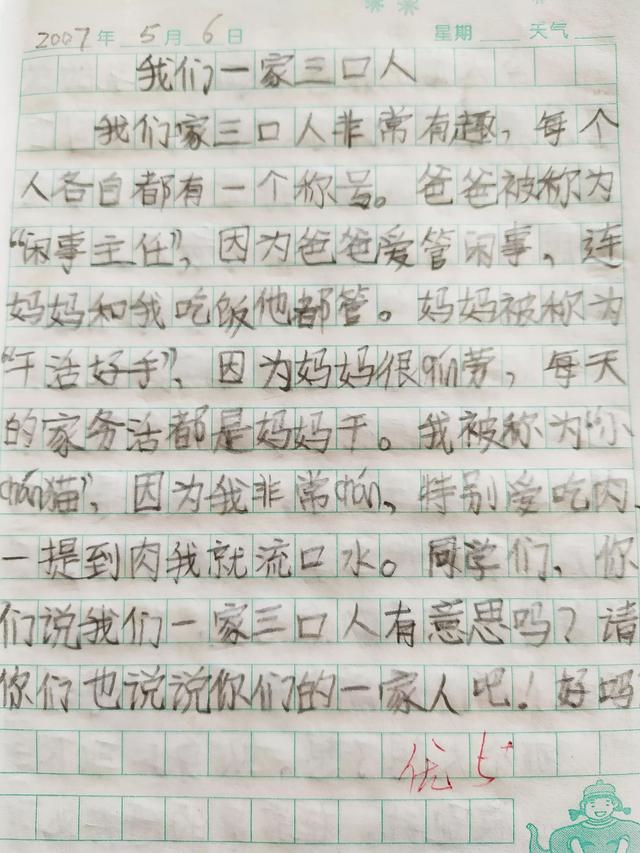 2007年5月6日 星期 天气
我们一家三口人
我们家三口人非常有趣，每个
人各自都有一个称号。爸爸被称为
“闲事主任”，因为爸爸爱管闲事，连
妈妈和我吃饭他都管。妈妈被称为
“干活好手”，因为妈妈很qín劳，每天
的家务活都是妈妈干。我被称为“小
chán猫”，因为我非常chán，特别爱吃肉，
一提到肉我就流口水。同学们，你
们说我们一家三口人有意思吗？请
你们也说说你们的一家人吧！好吗
优